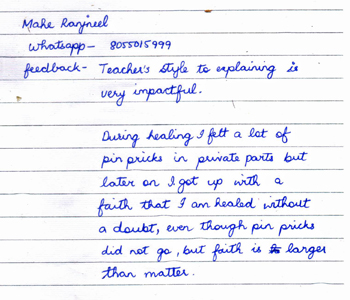 Make Ranjneel
Whatsapp - 8055015999
feedback - Teacher's style to explaining is
very impactful.
During healing I felt a lot of
pin pricks in private parts but
later on I got up with a
faith that I am healed without
a doubt, even though pin pricks
did not go, but faith is larger
than matter.